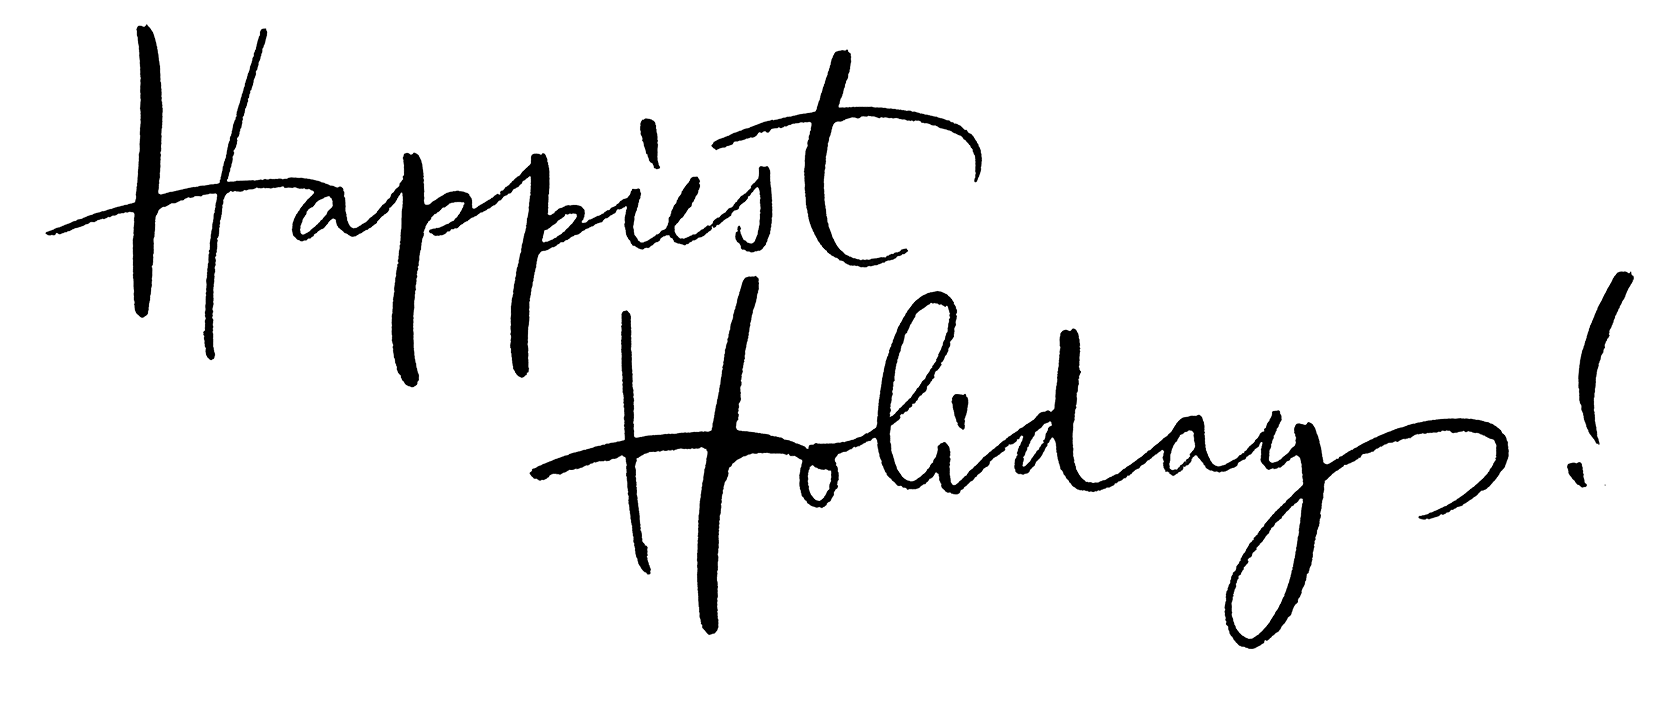 Happiest
Holidays!